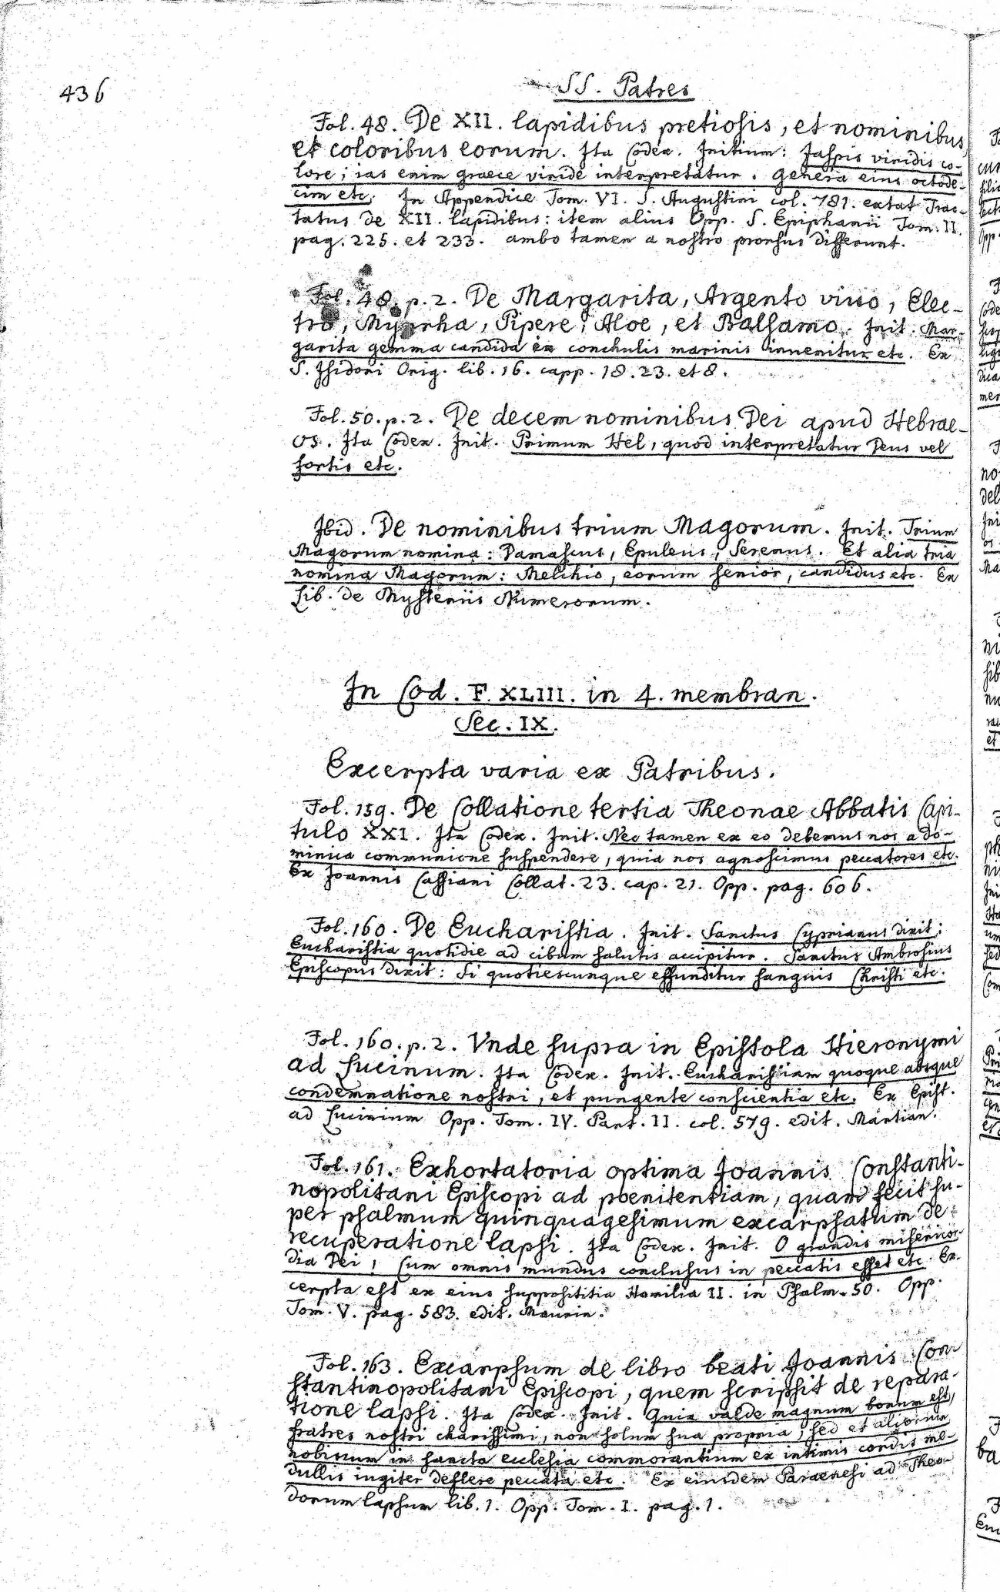 436
SS. Patres
Fol. 48. De XII. lapidibus pretiosis, et nominibus
et coloribus eorum. Ita Codex. Initium: Jaspis viridis co-
lore; ias enim graece viride interpretatur. Genera eius octode-
cim etc. In Appendice Tom. VI. S. Augustini col. 781. extat Trac-
tatus de XII. lapidibus: item alius Opp. S. Epiphanii Tom. II.
pag. 225. et 233. ambo tamen a nostro prorsus differunt.
Fol. 48. p. 2. De Margarita, Argento vivo, Elec-
tro, Myrrha, Pipere, Aloe, et Balsamo. Init: Mar-
garita gemma candida ex conchulis marinis invenitur etc. Ex
S. Isidori Orig. lib. 16. capp. 18. 23. et 8.
Fol. 50. p. 2. De decem nominibus Dei apud Hebrae-
os. Ita Codex. Init. Primum Hel, quod interpretatur Deus vel
fortis etc.
Ibid. De nominibus trium Magorum. Init. Trium
Magorum nomina: Damascus, Epuleus, Serenus. Et alia tria
nomina Magorum: Melchio, eorum senior, candidus etc. Ex
Lib. de Mysteriis Numerorum.
In Cod. F. XLIII. in 4. membran.
Sec. IX.
Excerpta varia ex Patribus.
Fol. 159. De Collatione tertia Theonae Abbatis Capi-
tulo XXI. Ita Codex. Init. Nec tamen ex eo debemus nos a do-
minica communione suspendere, quia nos agnoscimus peccatores etc.
Ex Joannis Cassiani Collat. 23. cap. 21. Opp. pag. 606.
Fol. 160. De Eucharistia. Init. Sanctus Cyprianus dixit;
Eucharistia quotidie ad cibum salutis accipitur. Sanctus Ambrosius
Episcopus dixit: Si quotiescunque effunditur sanguis Christi etc.
Fol. 160. p. 2. Unde supra in Epistola Hieronymi
ad Sucinum. Ita Codex. Init. Eucharistiam quoque absque
condemnatione nostri, et pungente conscientia etc. Ex Epist.
ad Lucinium Opp. Tom. IV. Part. II. col. 579. edit. Martian.
Fol. 161. Exhortatoria optima Joannis Constanti-
nopolitani Episcopi ad poenitentiam, quam fecit su-
per psalmum quinquagesimum excarpsatum de
recuperatione lapsi. Ita Codex. Init. O grandis misericor-
dia Dei! Cum omnis mundus conclusus in peccatis esset etc. Ex-
cerpta est ex eius supposititia Homilia II. in Psalm. 50. Opp.
Tom. V. pag. 583. edit. Maurin.
Fol. 163. Excarpsum de libro beati Joannis Con-
stantinopolitani Episcopi, quem scripsit de repara-
tione lapsi. Ita Codex. Init. Quia valde magnum bonum est,
fratres nostri charissimi, non solum sua propria, sed et aliorum
nobiscum in sancta ecclesia commorantium ex intimis cordis me-
dullis iugiter deflere peccata etc. Ex eiusdem Paraenesi ad Theo-
dorum lapsum lib. 1. Opp. Tom. I. pag. 1.